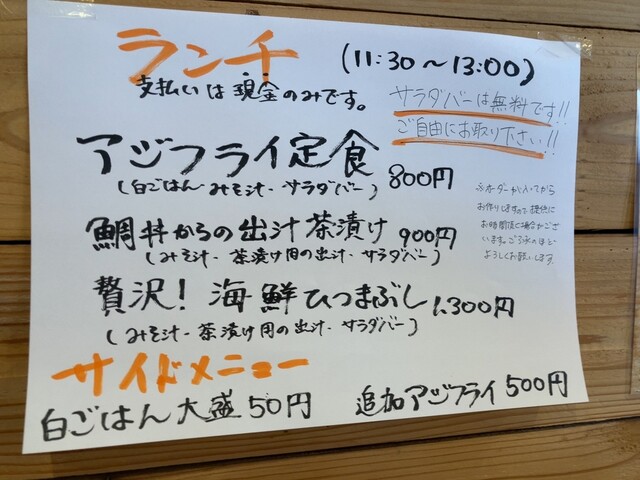 ランチ (11:30～13:00)
支払いは現金のみです。
サラダバーは無料です!!
ご自由にお取り下さい!!
アジフライ定食 800円
(白ごはん みそ汁・サラダバー)
※オーダーが入ってから
お作りしますので提供に
お時間頂く場合がござ
います。ご了承のほど
よろしくお願いします。
鯛丼からの出汁茶漬け 900円
(みそ汁・茶漬け用の出汁・サラダバー)
贅沢!海鮮ひつまぶし 1,300円
(みそ汁・茶漬け用の出汁・サラダバー)
サイドメニュー
白ごはん大盛50円 追加アジフライ500円